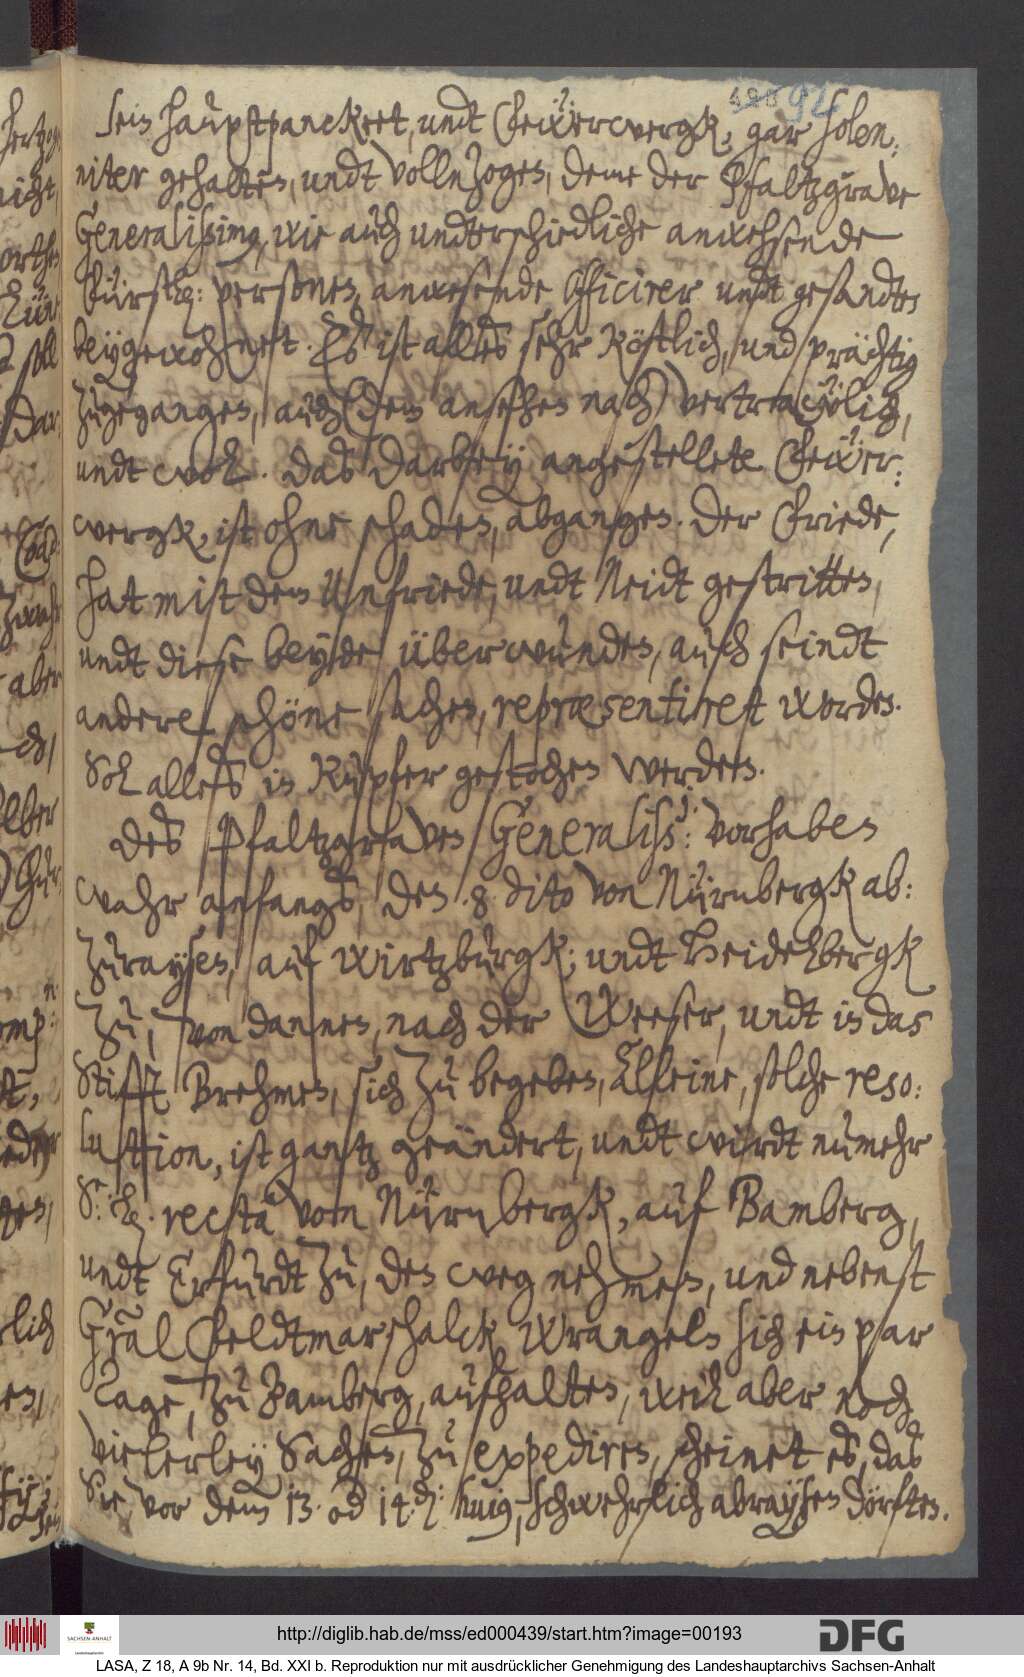 490 92
sein hauptpanckeet, undt Feẅerwergk, gar solen:
niter gehalten, undt vollnzogen, deme der Pfaltzgrave
Generalissimg, wie auch undterschiedliche anwehsende
Fürstl: personen, anwesende Officirer undt gesandten
beygewohnet. Es ist alles sehr köstlich, und prächtig
zugegangen, auch (dem ansehen nach) vertreẅlich,
undt wol. das darbey angestellete Feẅer:
wergk, ist ohne schaden, abgangen. Der Friede,
hat mit dem Unfriede, undt Neidt gestritten,
undt diese beyde überwunden, auch seindt
andere schöne sachen, repræsentiret worden.
Sol alles in Kupfer gestochen werden.
Des Pfaltzgraven Generaliss: vorhaben
wahr anfangs, den .8. dito von Nürnbergk ab:
zuraysen, auf Wirtzburgk; undt Heidelbergk
zu, von dannen, nach der Weeser, undt in das
Stifft Brehmen, sich zu begeben, Alleine, solche reso:
lution, ist gantz geändert, undt wirdt numehr
S: L. recta von Nürnbergk, auf Bamberg,
undt Erfurdt zu, den weg nehmen, und nebenst
Gral Feldtmarschalck Wrangeln sich ein par
Tage, zu Bamberg, aufhalten, weil aber noch
vielerley Sachen, zu expediren, scheinet es, das
Sie vor dem 13. od 14. d: huig, schwehrlich abraysen dörften.
http://diglib.hab.de/mss/ed000439/start.htm?image=00193
DFG
SACHSEN-ANHALT
LASA, Z 18, A 9b Nr. 14, Bd. XXI b. Reproduktion nur mit ausdrücklicher Genehmigung des Landeshauptarchivs Sachsen-Anhalt